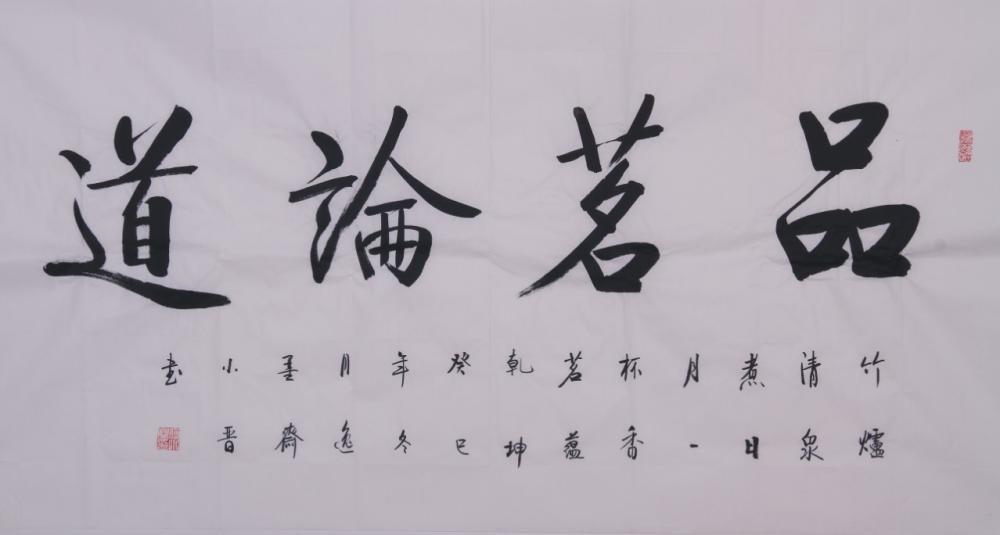 品茗論道
竹爐
清泉
煮日
月一
杯香
茗蘊
乾坤
癸巳
年冬
月逸
墨齋
小晋
书